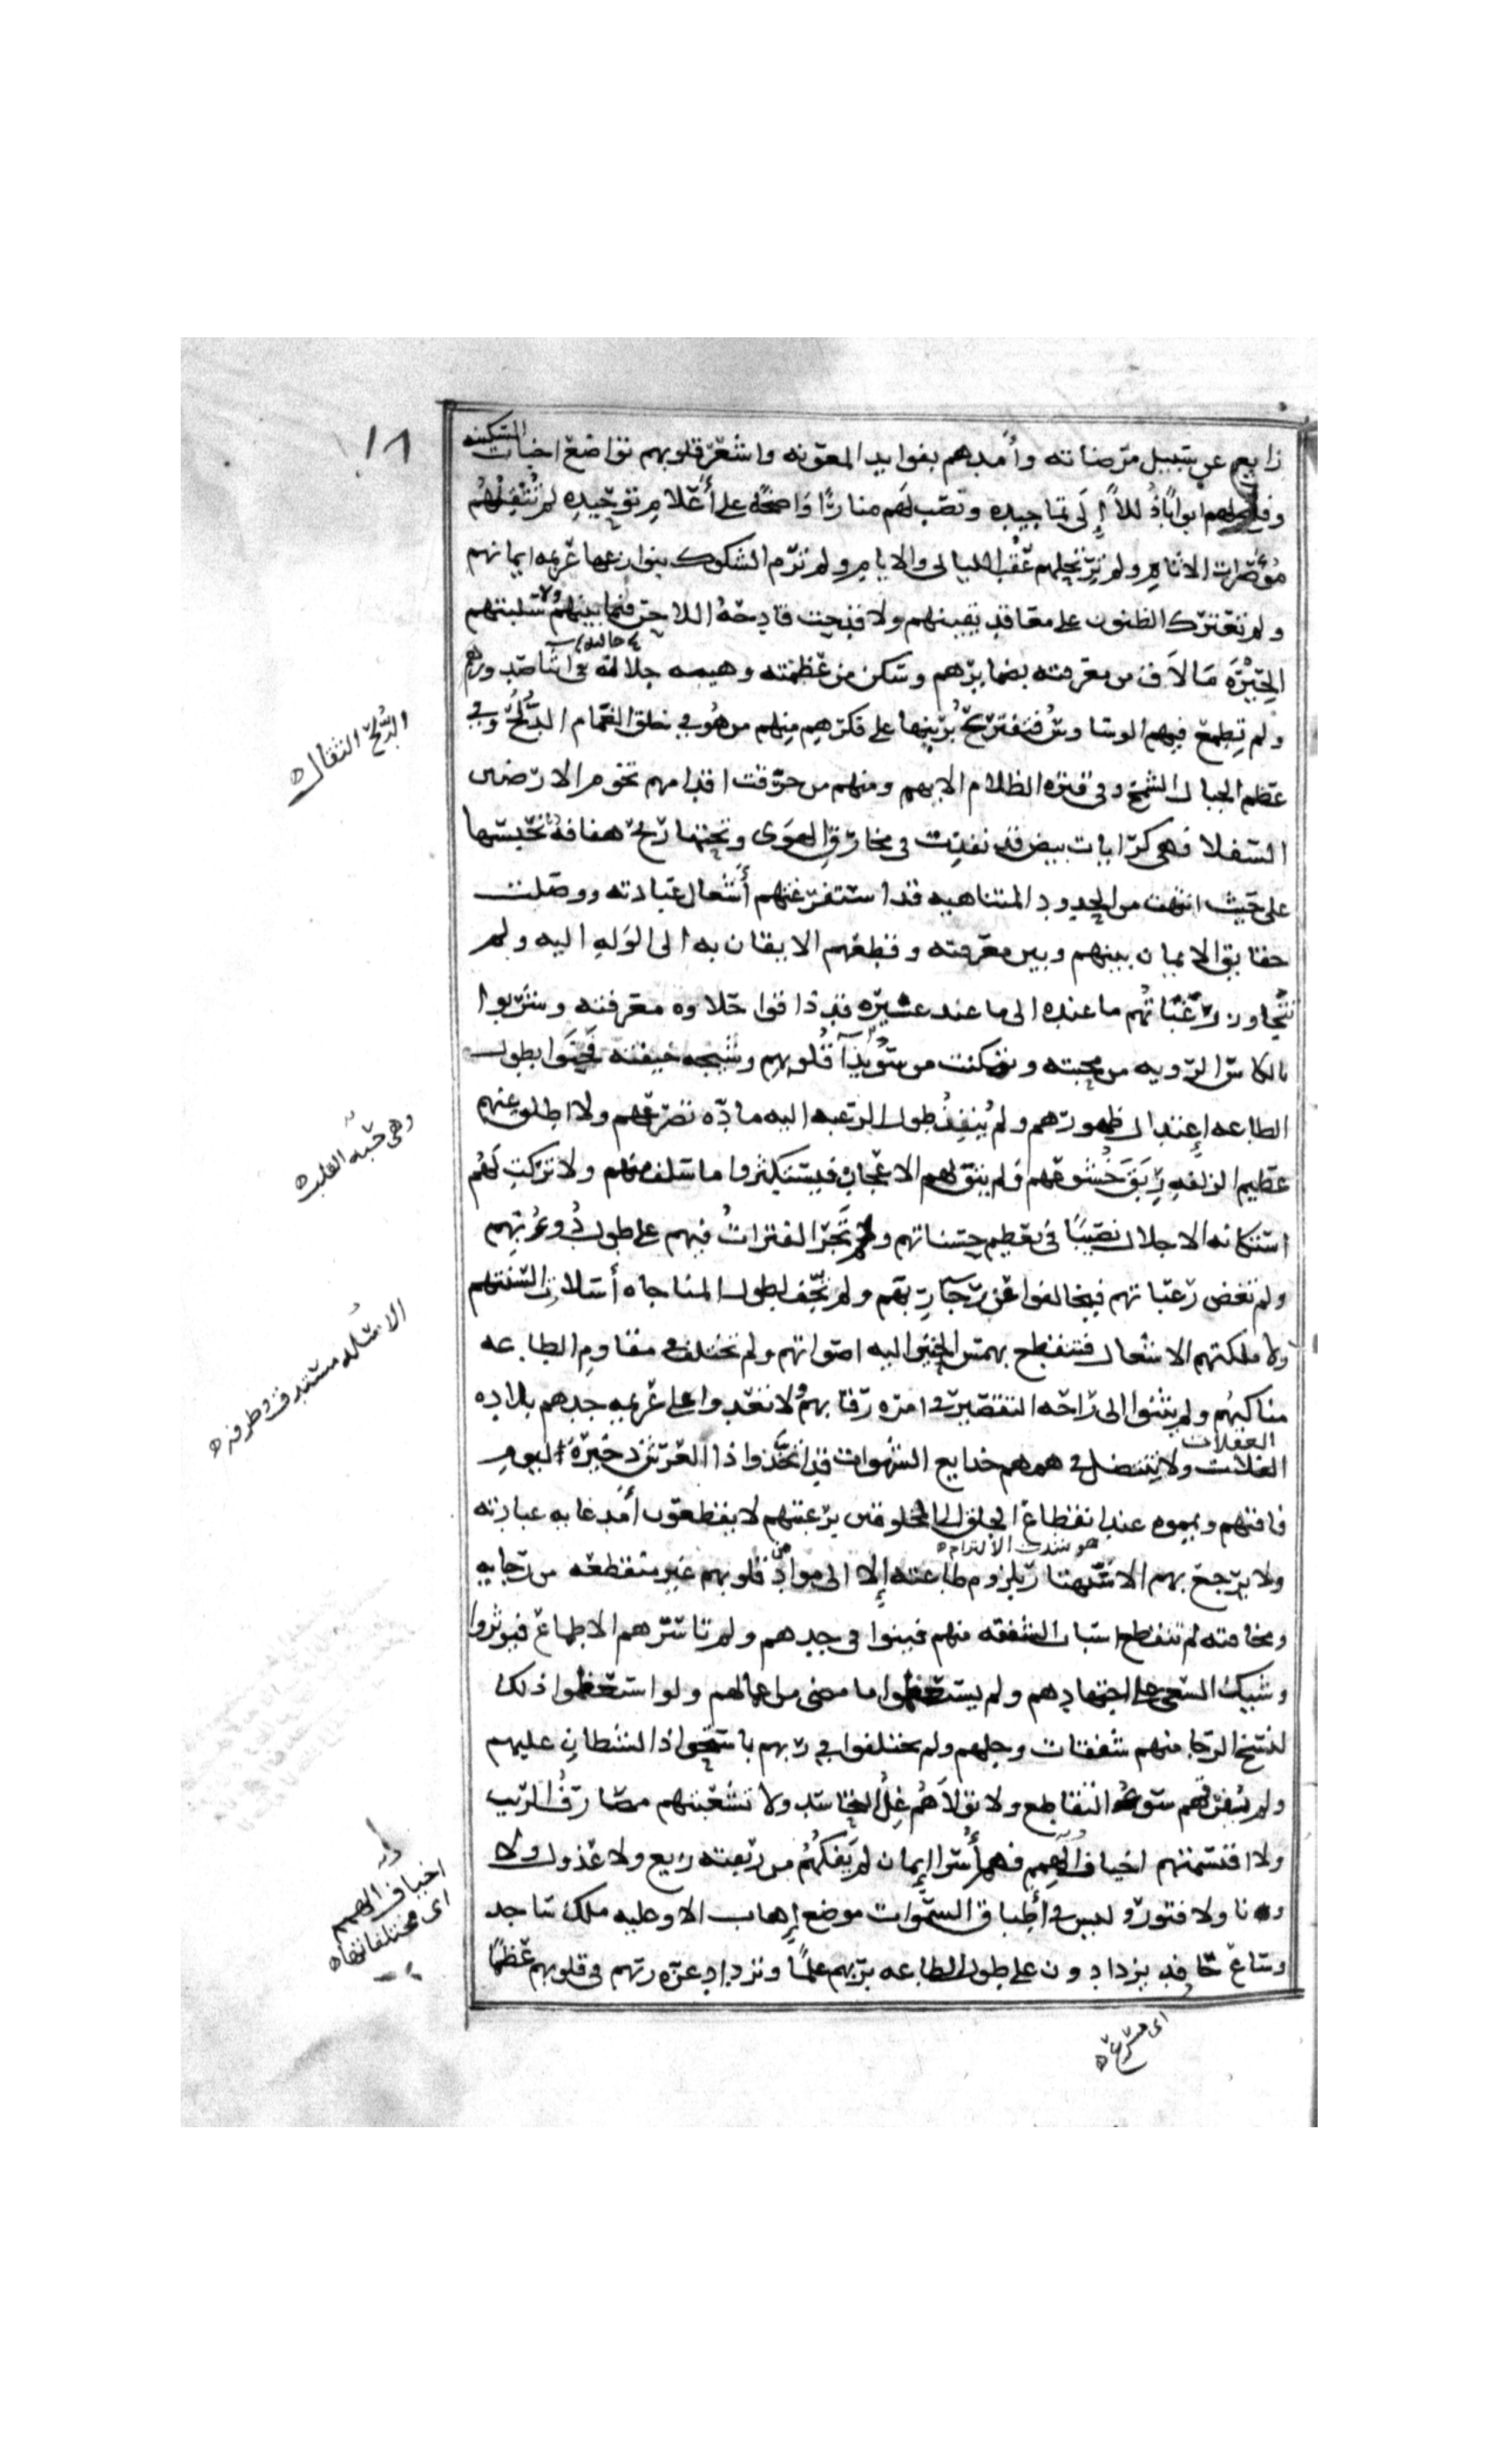 ١٨
زايع عن سبيل مرضاته وأمدهم بفوايد المعونه واشعر قلوبهم تواضع اخبات السكينه
وفتح لهم ابوابًا ذُللاً إلى تماجيده ونصب لهم منارًا واضحة على أعلام توحيده لم تثقلهم
مؤصرات الاثام ولم ترتحلهم عُقَب الليالى والايام ولم ترم الشكوك بنوازعها عزيمه ايمانهم
ولم تعترك الظنون على معاقد يقينهم ولا قدحت قادحة الاحن فيما بينهم ولا سلبتهم
الحَيْرَة مَا لاَق من معرفته بضمايرهم وسكن من عظمته وهيبه جلالته فى اثنا صدورهم
ولم تطمع فيهم الوساوس فتقترع برينها على فكرهم منهم من هُو في خلق الغمام الدُّلَّح وفي
عظم الجبال الشمخ وفى قتره الظلام الابهم ومنهم من خرقت اقدامهم تخوم الارضين
السفلا فهى كرايات بيض قد نفذت فى مخارق الهوى وتحتها ريح هفافة تحبسها
على حيث انتهت من الحدود المتناهيه قد استفرغتهم أشغال عبادته ووصلت
حقايق الايمان بينهم وبين معرفته وقطعهم الايقان به الى الوَلهِ اليه ولم
تتجاوز رَغَبَاتُهم ما عنده الى ما عند غيره قد ذاقوا حلاوه معرفته وشربوا
بالكاس الرويه من محبته وتمكنت من سُوَيْدَا قُلوبِهم وشيجه خيفته فحنَوا بطول
الطاعه إعتدال ظهورهم ولم يُنْفِد طول الرغبه اليه مادّه تضرعهم ولا اطلق عنهم
عظيم الزلفه رِبَقَ خُشُوعهم ولم يتولهم الاعجاب فيستكثروا ما سلف منهم ولا تركت لهُم
استكانه الاجلال نصيبًا فى تعظيم حسناتهم ولم تَجْرِ الفتراتُ فيهم على طول دُؤوبهم
ولم تغض رغباتهم فيخالفوا عن رجآ ربهم ولم تجفّ لطول المناجاه أسَلات السنتهم
ولا ملكتهم الاشغال فتنقطع بهمس الخير اليه اصواتهم ولم تختلف فى مقاوم الطاعه
مناكبهُم ولم يثنوا الى راحه التقصير فى امره رقابهم ولا تعدوا على عزيمه جدهم بلاده
الغفلات ولا تنتضل فى هممهم خدايع الشهوات قد اتخَّذوا ذا العرش ذخيرةً ليوم
فاقتهم ويمموه عند انقطاع الخلق الى المخلوقين برغبتهم لا يقطعون أمد غايه عبادته
هو شدت الالتزام
ولا يرجع بهم الاستهتار بلزوم طاعته إلا الى موادّ من قلوبهم غير منقطعه من رجايه
ومخافته لم تنقطع اسباب الشفقه منهم فينوا فى جدهم ولم تاسرهم الاطماع فيوثروا
وشيك السعى على اجتهادهم ولم يستعظموا ما مضى من اعمالهم ولو استعظموا ذلك
لنسخ الرجا منهم شفقات وجلهم ولم يختلفوا في ربهم باستحواذ الشيطان عليهم
ولم يُفرقهم سوءُ التقاطع ولا تولاّهُم غِلُّ التحاسد ولا تشعبتهم مصارفُ الريب
ولا اقتسمتهم اخياف الهِمم فهم أُسَرا إيمان لم يَفكهُم من ربقته زيع ولا عدول ولا
ونا ولا فتور وليس فى أطباق السموات موضع إهاب الا وعليه ملك ساجد
وساعٍ حافد يزدادون على طول الطاعه بربهم علمًا وتزداد عزه ربهم فى قلوبهم عظمًا
الدُّلَّح الثقال
وهى حبة القلب
الاسَلَه مستدق طرفه
اخياف الهمم
اى مختلفاتها
اى مسرع